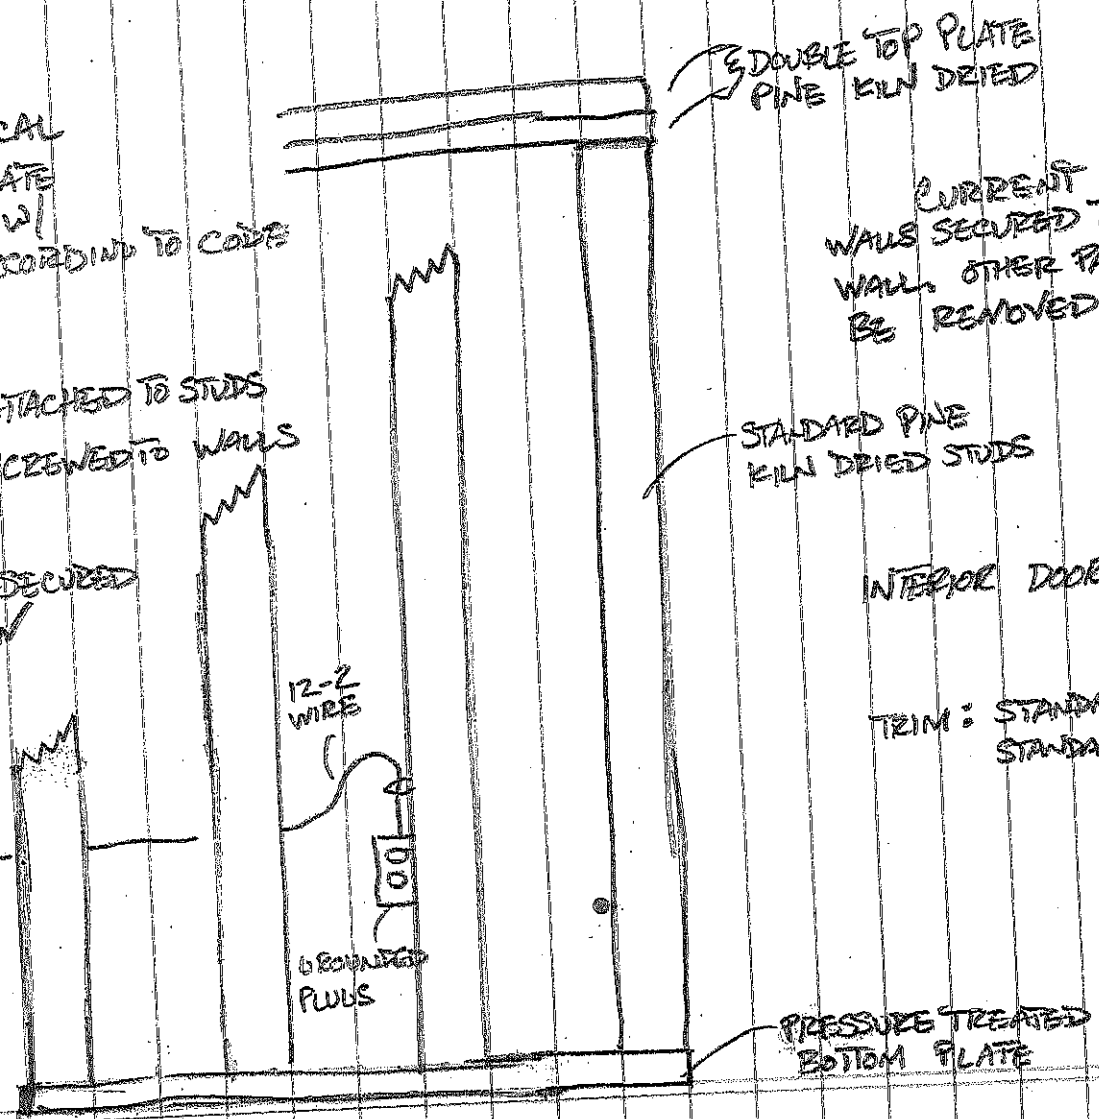 & DOUBLE TOP PLATE
PINE KILN DRIED
CAL
ATE
W/
CCORDING TO CODE
CURRENT
WALLS SECURED T
WALL. OTHER PA
BE REMOVED
TTACHED TO STUDS
CREWED TO WALLS
STANDARD PINE
KILN DRIED STUDS
SECURED
INTERIOR DOOR
12-2
WIRE
TRIM: STANDA
STANDA
GROUNDED
PLUGS
PRESSURE TREATED
BOTTOM PLATE